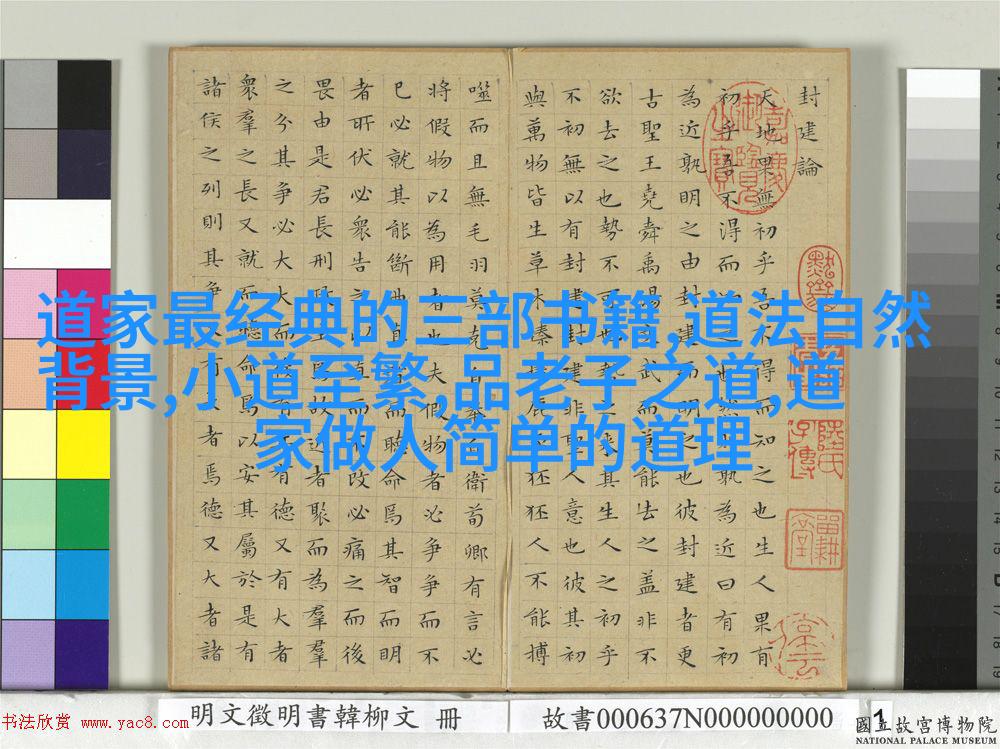 封建論
天地果無初乎吾不得而知之也生人果有
初乎吾不得而知之也然則孰為近曰有初
為近孰明之由封建而明之也彼封建者更
古聖王堯舜禹湯文武而莫能去之蓋非不
欲去之也勢不可也勢之來其生人之初乎
不初無以有封建封建非聖人意也彼其初
與萬物皆生草木榛榛鹿豕狉狉人不能搏
噬而且無毛羽莫克自奉自衛荀卿有言必
將假物以為用者也夫假物者必爭爭而不
已必就其能斷曲直者而聽命焉其智而明
者所伏必眾告之以直而不改必痛之而後
畏由是君長刑政生焉故近者聚而為羣羣
之分其爭必大大而後有兵有德又有大者
衆羣之長又就而聽命焉以安其屬於是有
諸侯之列則其爭又有大者焉德又大者諸
道家最经典的三部书籍,道法自然
背景,小道至繁,品老子之道,道
家做人简单的道理
书法欣赏 www.yac8.com
明文徵明書韓柳文 冊
故書000637N000000000
1
國立故宮博物院
NATIONAL PALACE MUSEUM